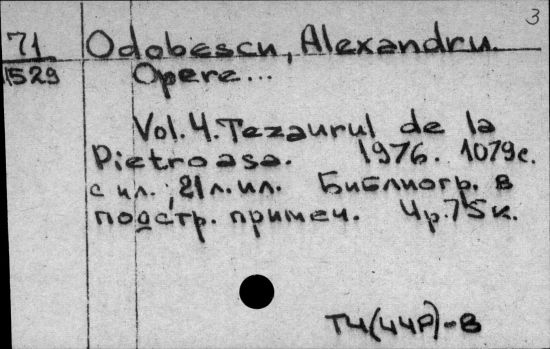 3
71
1529
Odobescu, Alexandru.
Opere...
Vol.4.Tezaurul de la
Pietroasa. 1976. 1079c.
с ил.; 21 л.ил. Библиогр. в
подстр. примеч. 4р.75к.
Т4(44Р)-8